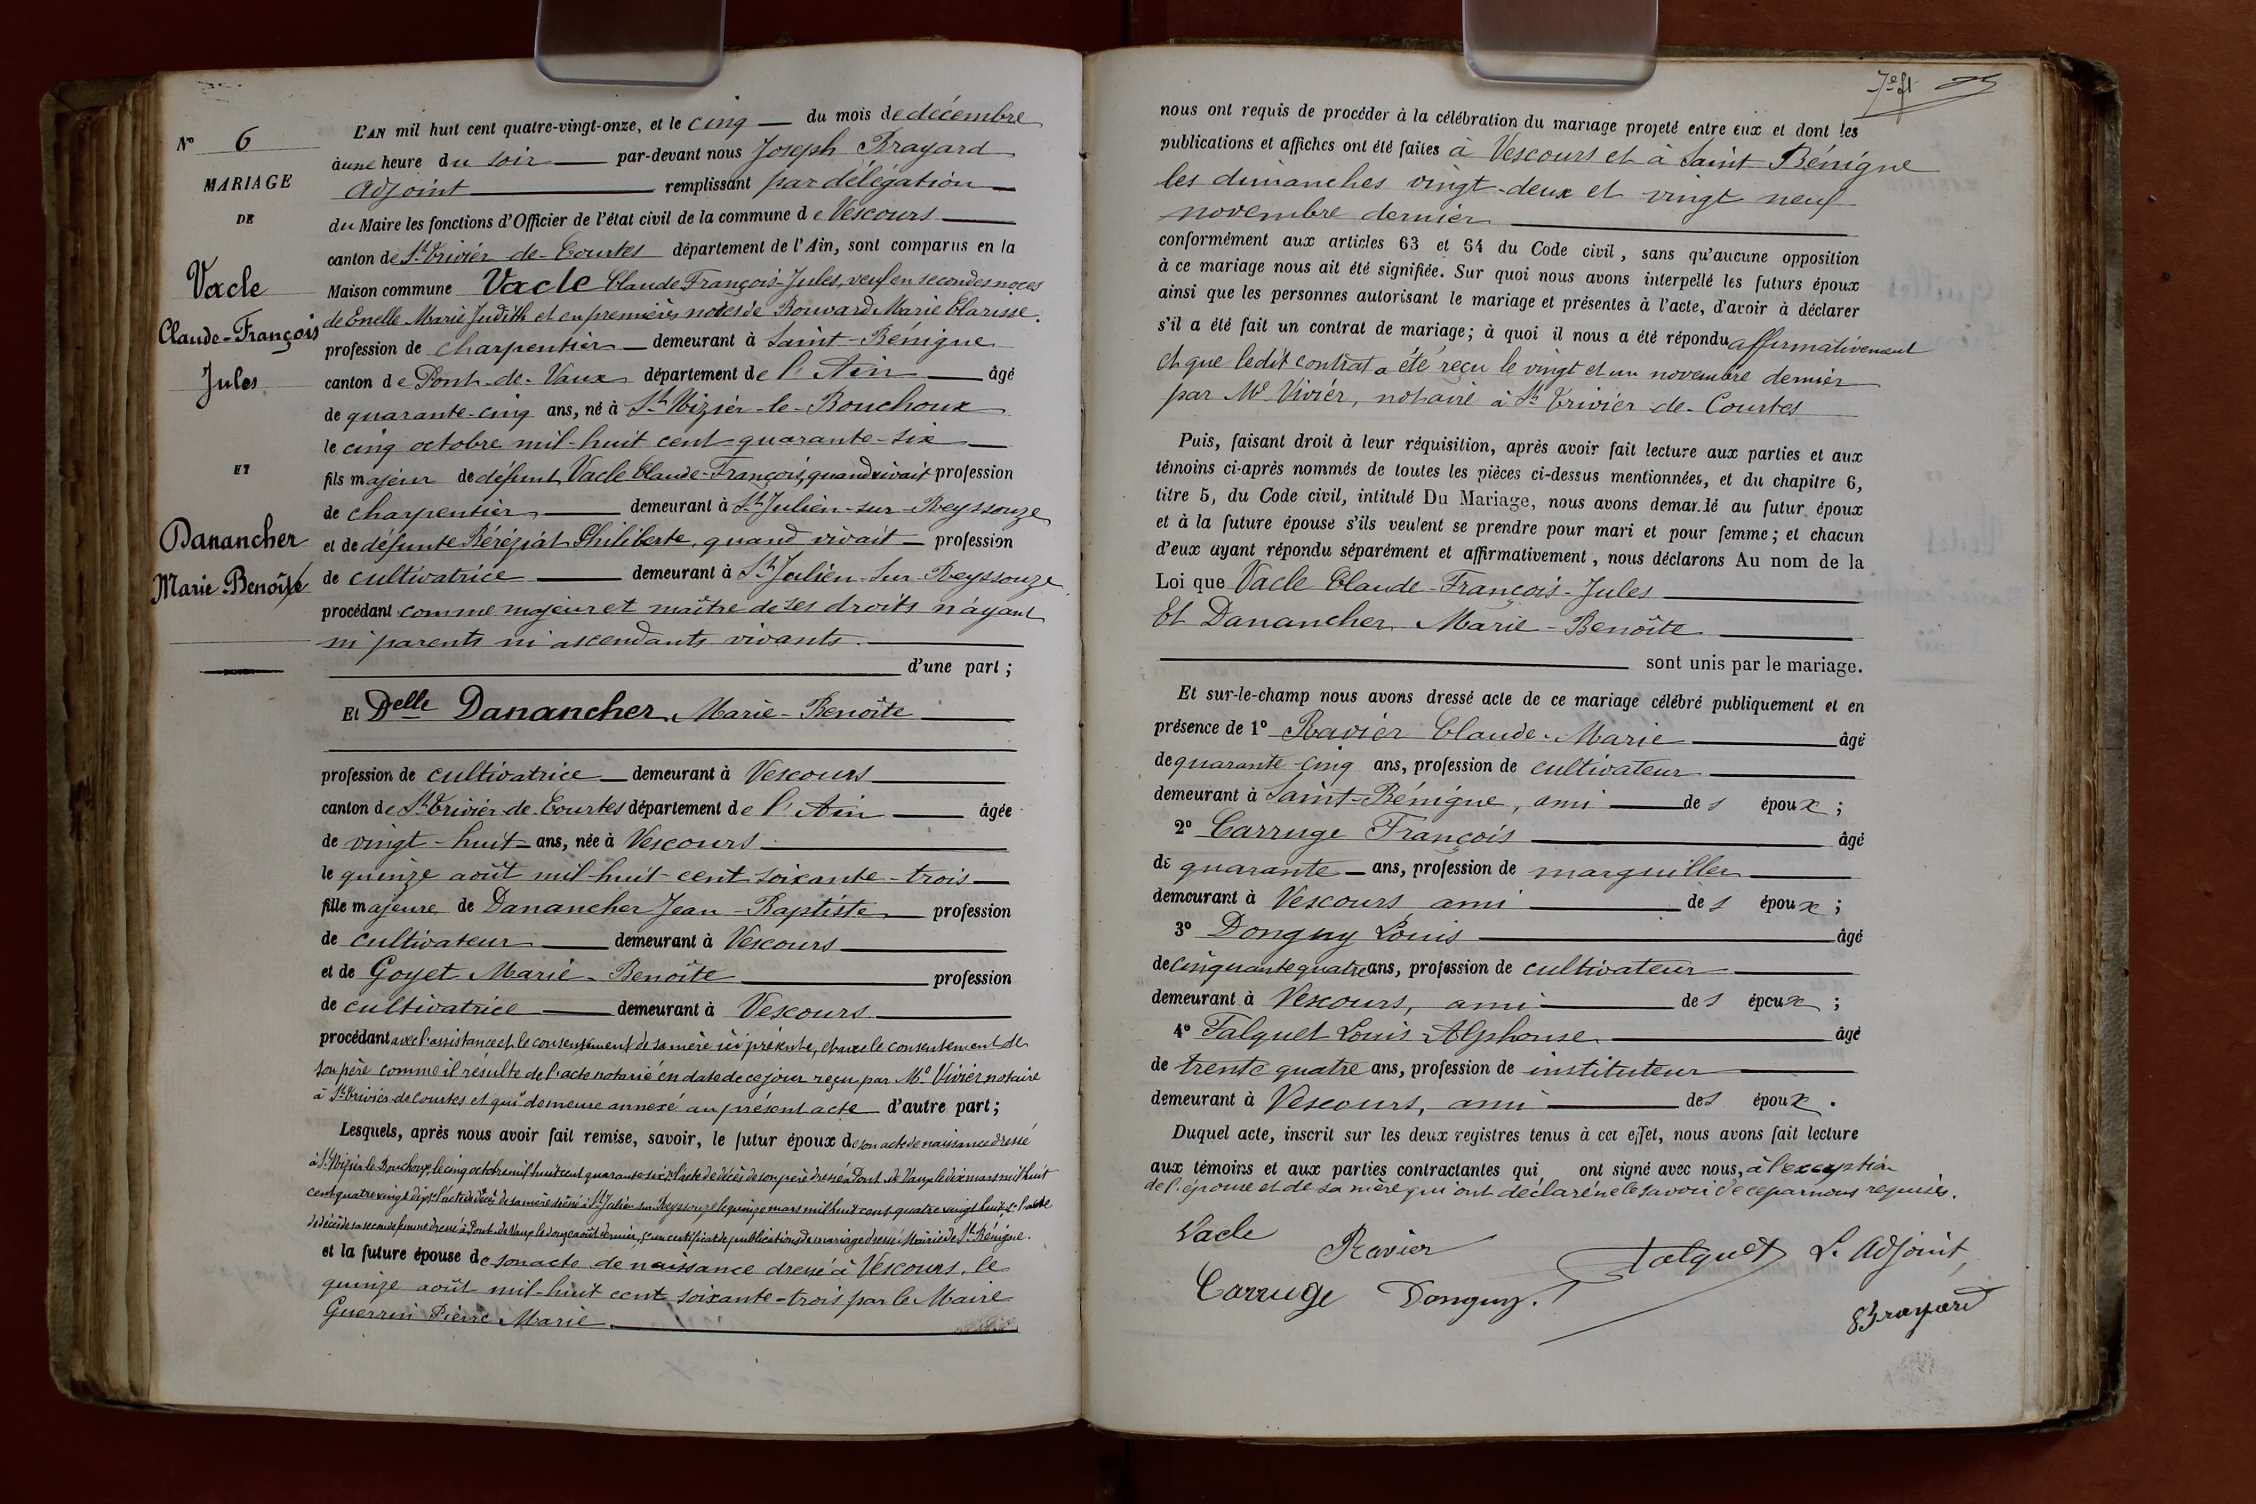 N° 6
MARIAGE
DE
Vacle
Claude-François
Jules
ET
Danancher
Marie-Benoîte
L'AN mil huit cent quatre-vingt-onze, et le cinq du mois de décembre
à une heure du soir par-devant nous Joseph Brayard
Adjoint remplissant par délégation
du Maire les fonctions d'Officier de l'état civil de la commune de Vescours
canton de St Trivier-de-Courtes département de l'Ain, sont comparus en la
Maison commune Vacle Claude François-Jules, veuf en secondes noces
de Enelle Marie Judith et en premières noces de Bouvard Marie Clarisse.
profession de charpentier demeurant à Saint-Bénigne
canton de Pont-de-Vaux département de l'Ain âgé
de quarante-cinq ans, né à St Nizier-le-Bouchoux
le cinq octobre mil-huit cent quarante-six
fils majeur de défunt Vacle Claude-François, quand vivait profession
de charpentier demeurant à St Julien-sur-Reyssouze
et de défunte Béréziat Philiberte, quand vivait profession
de cultivatrice demeurant à St Julien-sur-Reyssouze
procédant comme majeur et maître de ses droits n'ayant
ni parents ni ascendants vivants.
d'une part ;
Et Delle Danancher Marie-Benoîte
profession de cultivatrice demeurant à Vescours
canton de St Trivier-de-Courtes département de l'Ain âgée
de vingt-huit ans, née à Vescours
le quinze août mil-huit-cent soixante-trois
fille majeure de Danancher Jean-Baptiste profession
de cultivateur demeurant à Vescours
et de Goyet Marie-Benoîte profession
de cultivatrice demeurant à Vescours
procédant avec l'assistance et le consentement de sa mère ici présente, et avec le consentement de
son père comme il résulte de l'acte notarié en date de ce jour reçu par Me Vivier notaire
à St Trivier-de-Courtes et qui demeure annexé au présent acte d'autre part ;
Lesquels, après nous avoir fait remise, savoir, le futur époux de son acte de naissance dressé
à St Nizier le Bouchoux, le cinq octobre mil huit cent quarante-six, l'acte de décès de son père dressé à Pont-de-Vaux le dix mars mil huit
cent quatre vingt l'acte de décès de sa mère dressé à St Julien sur Reyssouze le quinze mars mil huit cent quatre vingt huit, l'acte
de décès de sa seconde femme dressé à Pont-de-Vaux le douze août dernier, un certificat de publications de mariage dressé Mairie de St Bénigne.
et la future épouse de son acte de naissance dressé à Vescours, le
quinze août mil-huit cent soixante-trois par le Maire
Guerrin Pierre Marie
7e ft
nous ont requis de procéder à la célébration du mariage projeté entre eux et dont les
publications et affiches ont été faites à Vescours et à Saint Bénigne
les dimanches vingt-deux et vingt neuf
novembre dernier
conformément aux articles 63 et 64 du Code civil, sans qu'aucune opposition
à ce mariage nous ait été signifiée. Sur quoi nous avons interpellé les futurs époux
ainsi que les personnes autorisant le mariage et présentes à l'acte, d'avoir à déclarer
s'il a été fait un contrat de mariage ; à quoi il nous a été répondu affirmativement
et que ledit contrat a été reçu le vingt et un novembre dernier
par Me Vivier, notaire à St Trivier-de-Courtes
Puis, faisant droit à leur réquisition, après avoir fait lecture aux parties et aux
témoins ci-après nommés de toutes les pièces ci-dessus mentionnées, et du chapitre 6,
titre 5, du Code civil, intitulé Du Mariage, nous avons demandé au futur époux
et à la future épouse s'ils veulent se prendre pour mari et pour femme ; et chacun
d'eux ayant répondu séparément et affirmativement, nous déclarons Au nom de la
Loi que Vacle Claude-François-Jules
Et Danancher Marie-Benoîte
sont unis par le mariage.
Et sur-le-champ nous avons dressé acte de ce mariage célébré publiquement et en
présence de 1° Ravier Claude-Marie âgé
de quarante-cinq ans, profession de cultivateur
demeurant à Saint-Bénigne, ami des époux ;
2° Carruge François âgé
de quarante ans, profession de marguiller
demeurant à Vescours ami des époux ;
3° Donguy Louis âgé
de cinquante quatre ans, profession de cultivateur
demeurant à Vescours, ami des époux ;
4° Falquet Louis-Alphonse âgé
de trente quatre ans, profession de instituteur
demeurant à Vescours, ami des époux.
Duquel acte, inscrit sur les deux registres tenus à cet effet, nous avons fait lecture
aux témoins et aux parties contractantes qui ont signé avec nous, à l'exception
de l'épouse et de sa mère qui ont déclaré ne le savoir de ce par nous requises.
Vacle Ravier Falquet L. Adjoint,
Carruge Donguy. Brayard